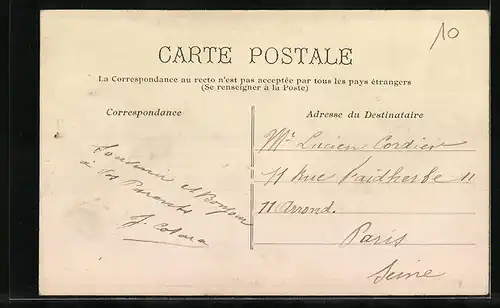 10
CARTE POSTALE
La Correspondance au recto n'est pas acceptée par tous les pays étrangers
(Se renseigner à la Poste)
Correspondance
Adresse du Destinataire
Souvenir et Bonjour
à vos Parents
Mr Lucien Cordier
11 Rue Faidherbe 11
11 Arrond.
Paris
Seine